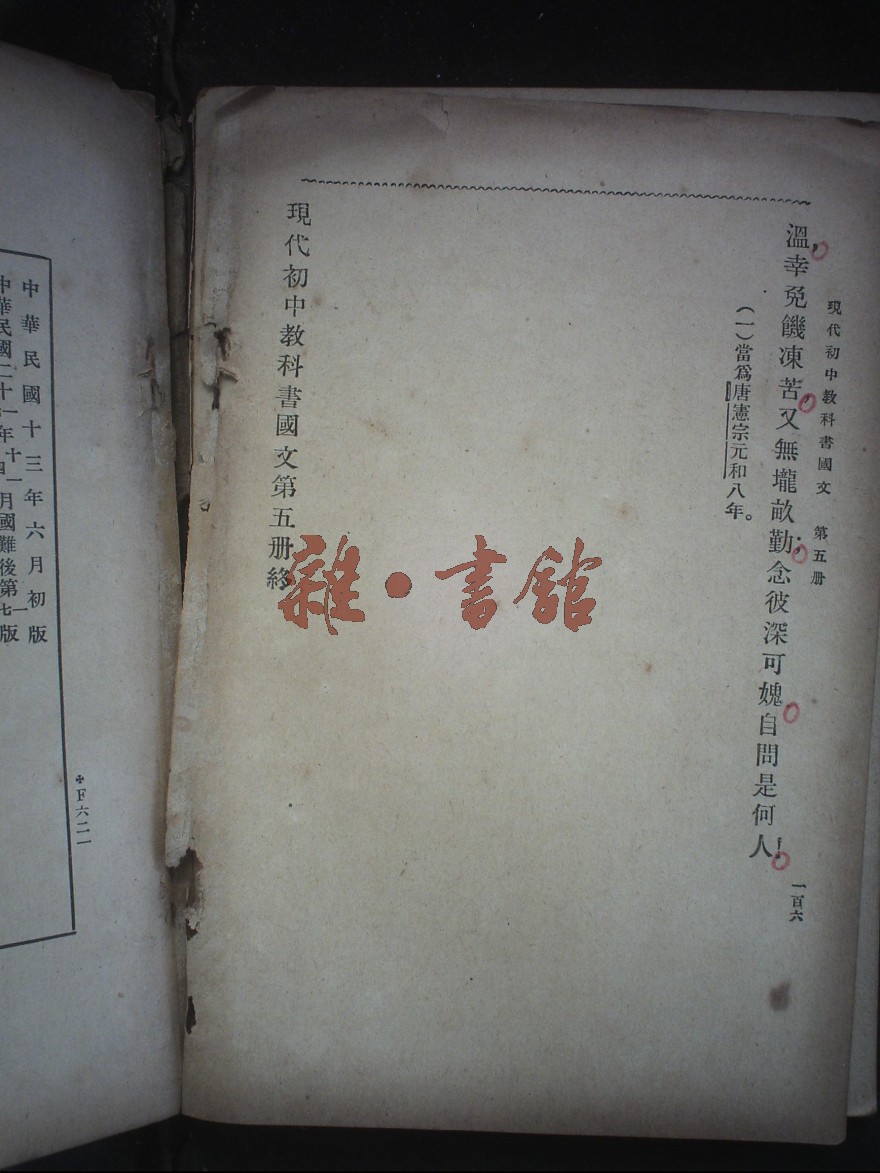 現代初中教科書國文　第五册
溫，幸免饑凍苦，又無壠畝勤；念彼深可媿自問是何人！
（一）當爲唐憲宗元和八年。
一百六
現代初中教科書國文第五册終
雜·書舘
中華民國十三年六月初版
中華民國二十一年十一月國難後第一版
F六二一